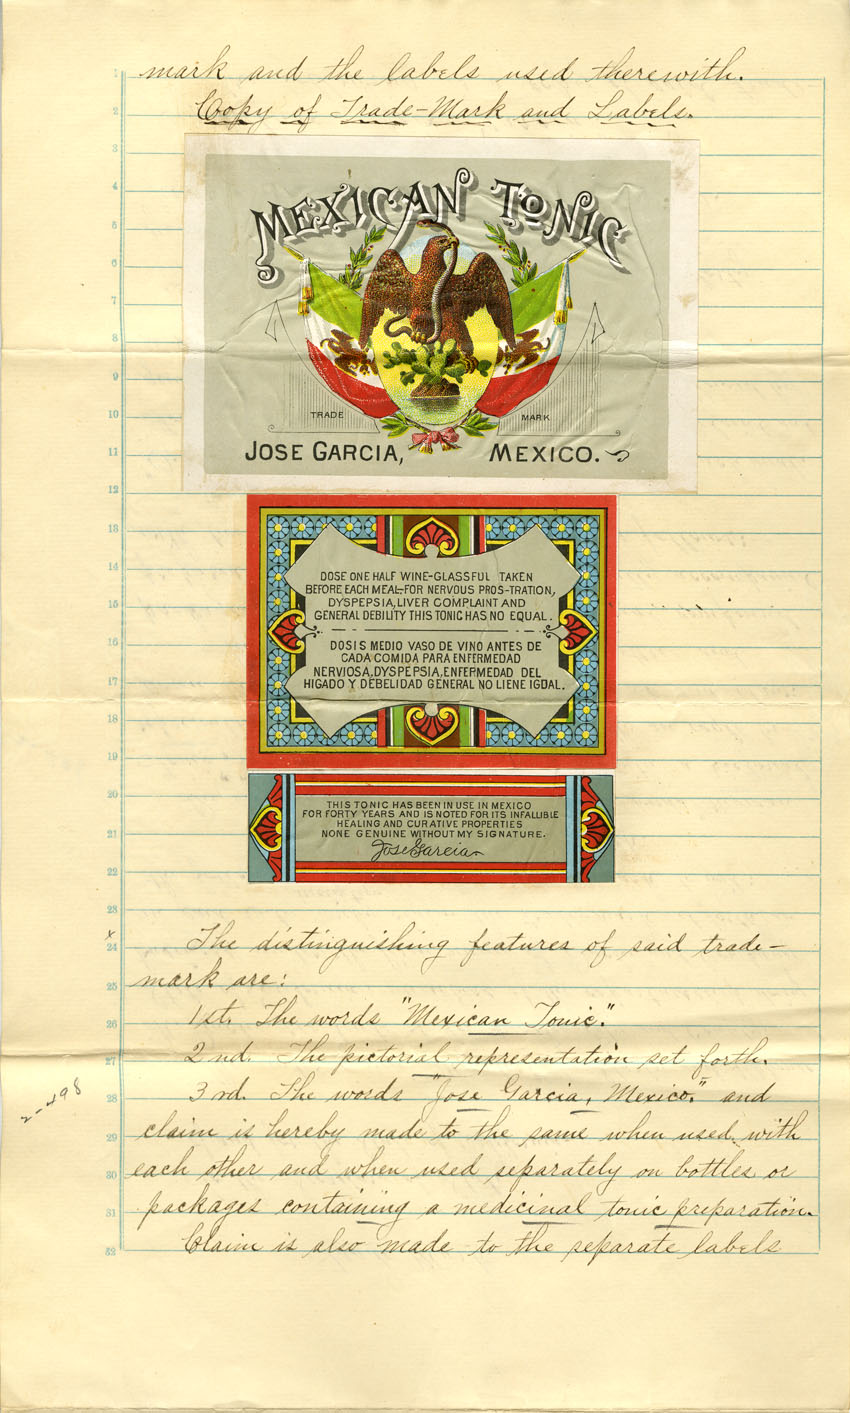 mark and the labels used therewith.
Copy of Trade-Mark and Labels.
MEXICAN TONIC
TRADE MARK
JOSE GARCIA, MEXICO.
DOSE ONE HALF WINE-GLASSFUL TAKEN
BEFORE EACH MEAL-FOR NERVOUS PROS-TRATION,
DYSPEPSIA, LIVER COMPLAINT AND
GENERAL DEBILITY THIS TONIC HAS NO EQUAL.
DOSIS MEDIO VASO DE VINO ANTES DE
CADA COMIDA PARA ENFERMEDAD
NERVIOSA, DYSPEPSIA, ENFERMEDAD DEL
HIGADO Y DEBELIDAD GENERAL NO LIENE IGUAL.
THIS TONIC HAS BEEN IN USE IN MEXICO
FOR FORTY YEARS AND IS NOTED FOR ITS INFALLIBLE
HEALING AND CURATIVE PROPERTIES
NONE GENUINE WITHOUT MY SIGNATURE.
Jose Garcia
The distinguishing features of said trade-
mark are:
1st. The words "Mexican Tonic."
2nd. The pictorial representation set forth.
3rd. The words "Jose Garcia, Mexico." and
claim is hereby made to the same when used with
each other and when used separately on bottles or
packages containing a medicinal tonic preparation.
Claim is also made to the separate labels
1
2
3
4
5
6
7
8
9
10
11
12
13
14
15
16
17
18
19
20
21
22
23
x
24
25
26
27
28
29
30
31
32
2-498